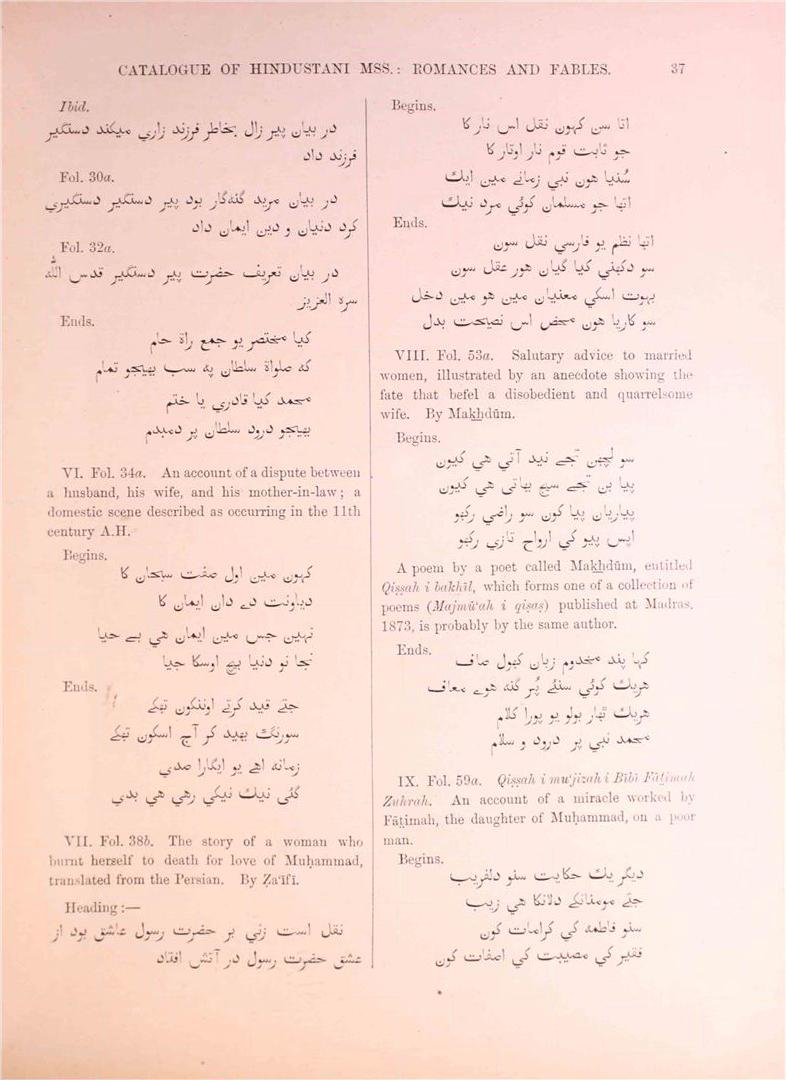 CATALOGUE OF HINDUSTANI MSS.: ROMANCES AND FABLES. 37
Ibid.
در بیان پیر زال بخاطر فرزند زاري میکند دستگیر
فرزند داد
Fol. 30a.
در بیان مرید گنهگار بود پیر دستگیر دستگیري
کرد دنیان و دین ایمان داد
Fol. 32a.
در بیان تعریف حضرت پیر دستگیر قدس الله
سره العزیز
Ends.
کیا مختصر یو جمع راه حام
که صلواة سلطان په سب بهیجو تمام
محمد کیا قادري یا ختم
بهیجو درود سلطان پر دمبدم
VI. Fol. 34a. An account of a dispute between
a husband, his wife, and his mother-in-law; a
domestic scene described as occurring in the 11th
century A.H.
Begins.
کهون مین اول صفت سبحان کا
دیاونت دے دان ایمان کا
نهین جس مین ایمان هي بے حیا
نجا نو دنیا بیچ اوسکا جیا
Ends.
جتے قید کرتے اوننکون تهکے
سورنگ بهید کر آج اسکون تهکے
زمانه اهے یو ایگارا صدي
گئی نیك نیکي رهي هي بدي
VII. Fol. 38b. The story of a woman who
burnt herself to death for love of Muḥammad,
translated from the Persian. By Ẓa'īfī.
Heading :—
نقل است زني بر حضرت رسول عاشق بود از
عشق حضرت رسول در آتش افتاد
Begins.
اتا سن کهون نقل اس نار کا
جو ثابت قوم نار اوتار کا
سُنیا هون نبي زمانے مین ایك
اتها جو مسلمان کوئي مرد نیك
Ends.
اتها نظم یو فارسي نقل سون
سو دکهني کیا گیان هور عقل سون
بهوت اسکي معنیان مین هو مین دخل
سو کاریا هون محض اس نصیحت بدل
VIII. Fol. 53a. Salutary advice to married
women, illustrated by an anecdote showing the
fate that befel a disobedient and quarrelsome
wife. By Makhdūm.
Begins.
سو لچهن تجے نید آتي هي کیون
پیا بن تجے سیج بهاتي هي کیون
پیاریان پیا کون سو راضي رکهو
اپس پیو کي ارواح تازي رکهو
A poem by a poet called Makhdūm, entitled
Qiṣṣah i bakhīl, which forms one of a collection of
poems (Majmū'ah i qiṣaṣ) published at Madras,
1873, is probably by the same author.
Ends.
کہا پند مخدوم زبان کهول صاف
هریك کوئي سنئے پُر گنه هوے معاف
هریك ٹهار بولو یو پورا کلام
محمد نبي پر درود و سلام
IX. Fol. 59a. Qiṣṣah i mu'jizah i Bībī Fāṭimah
Zuhrah. An account of a miracle worked by
Fāṭimah, the daughter of Muḥammad, on a poor
man.
Begins.
دیگر یك حکایت سنو دلفریب
جتے مومنانکے دلانکا هي زیب
سنو فاطمه کي کرامات کون
فقیر کي مصیبت کي اصفات کون